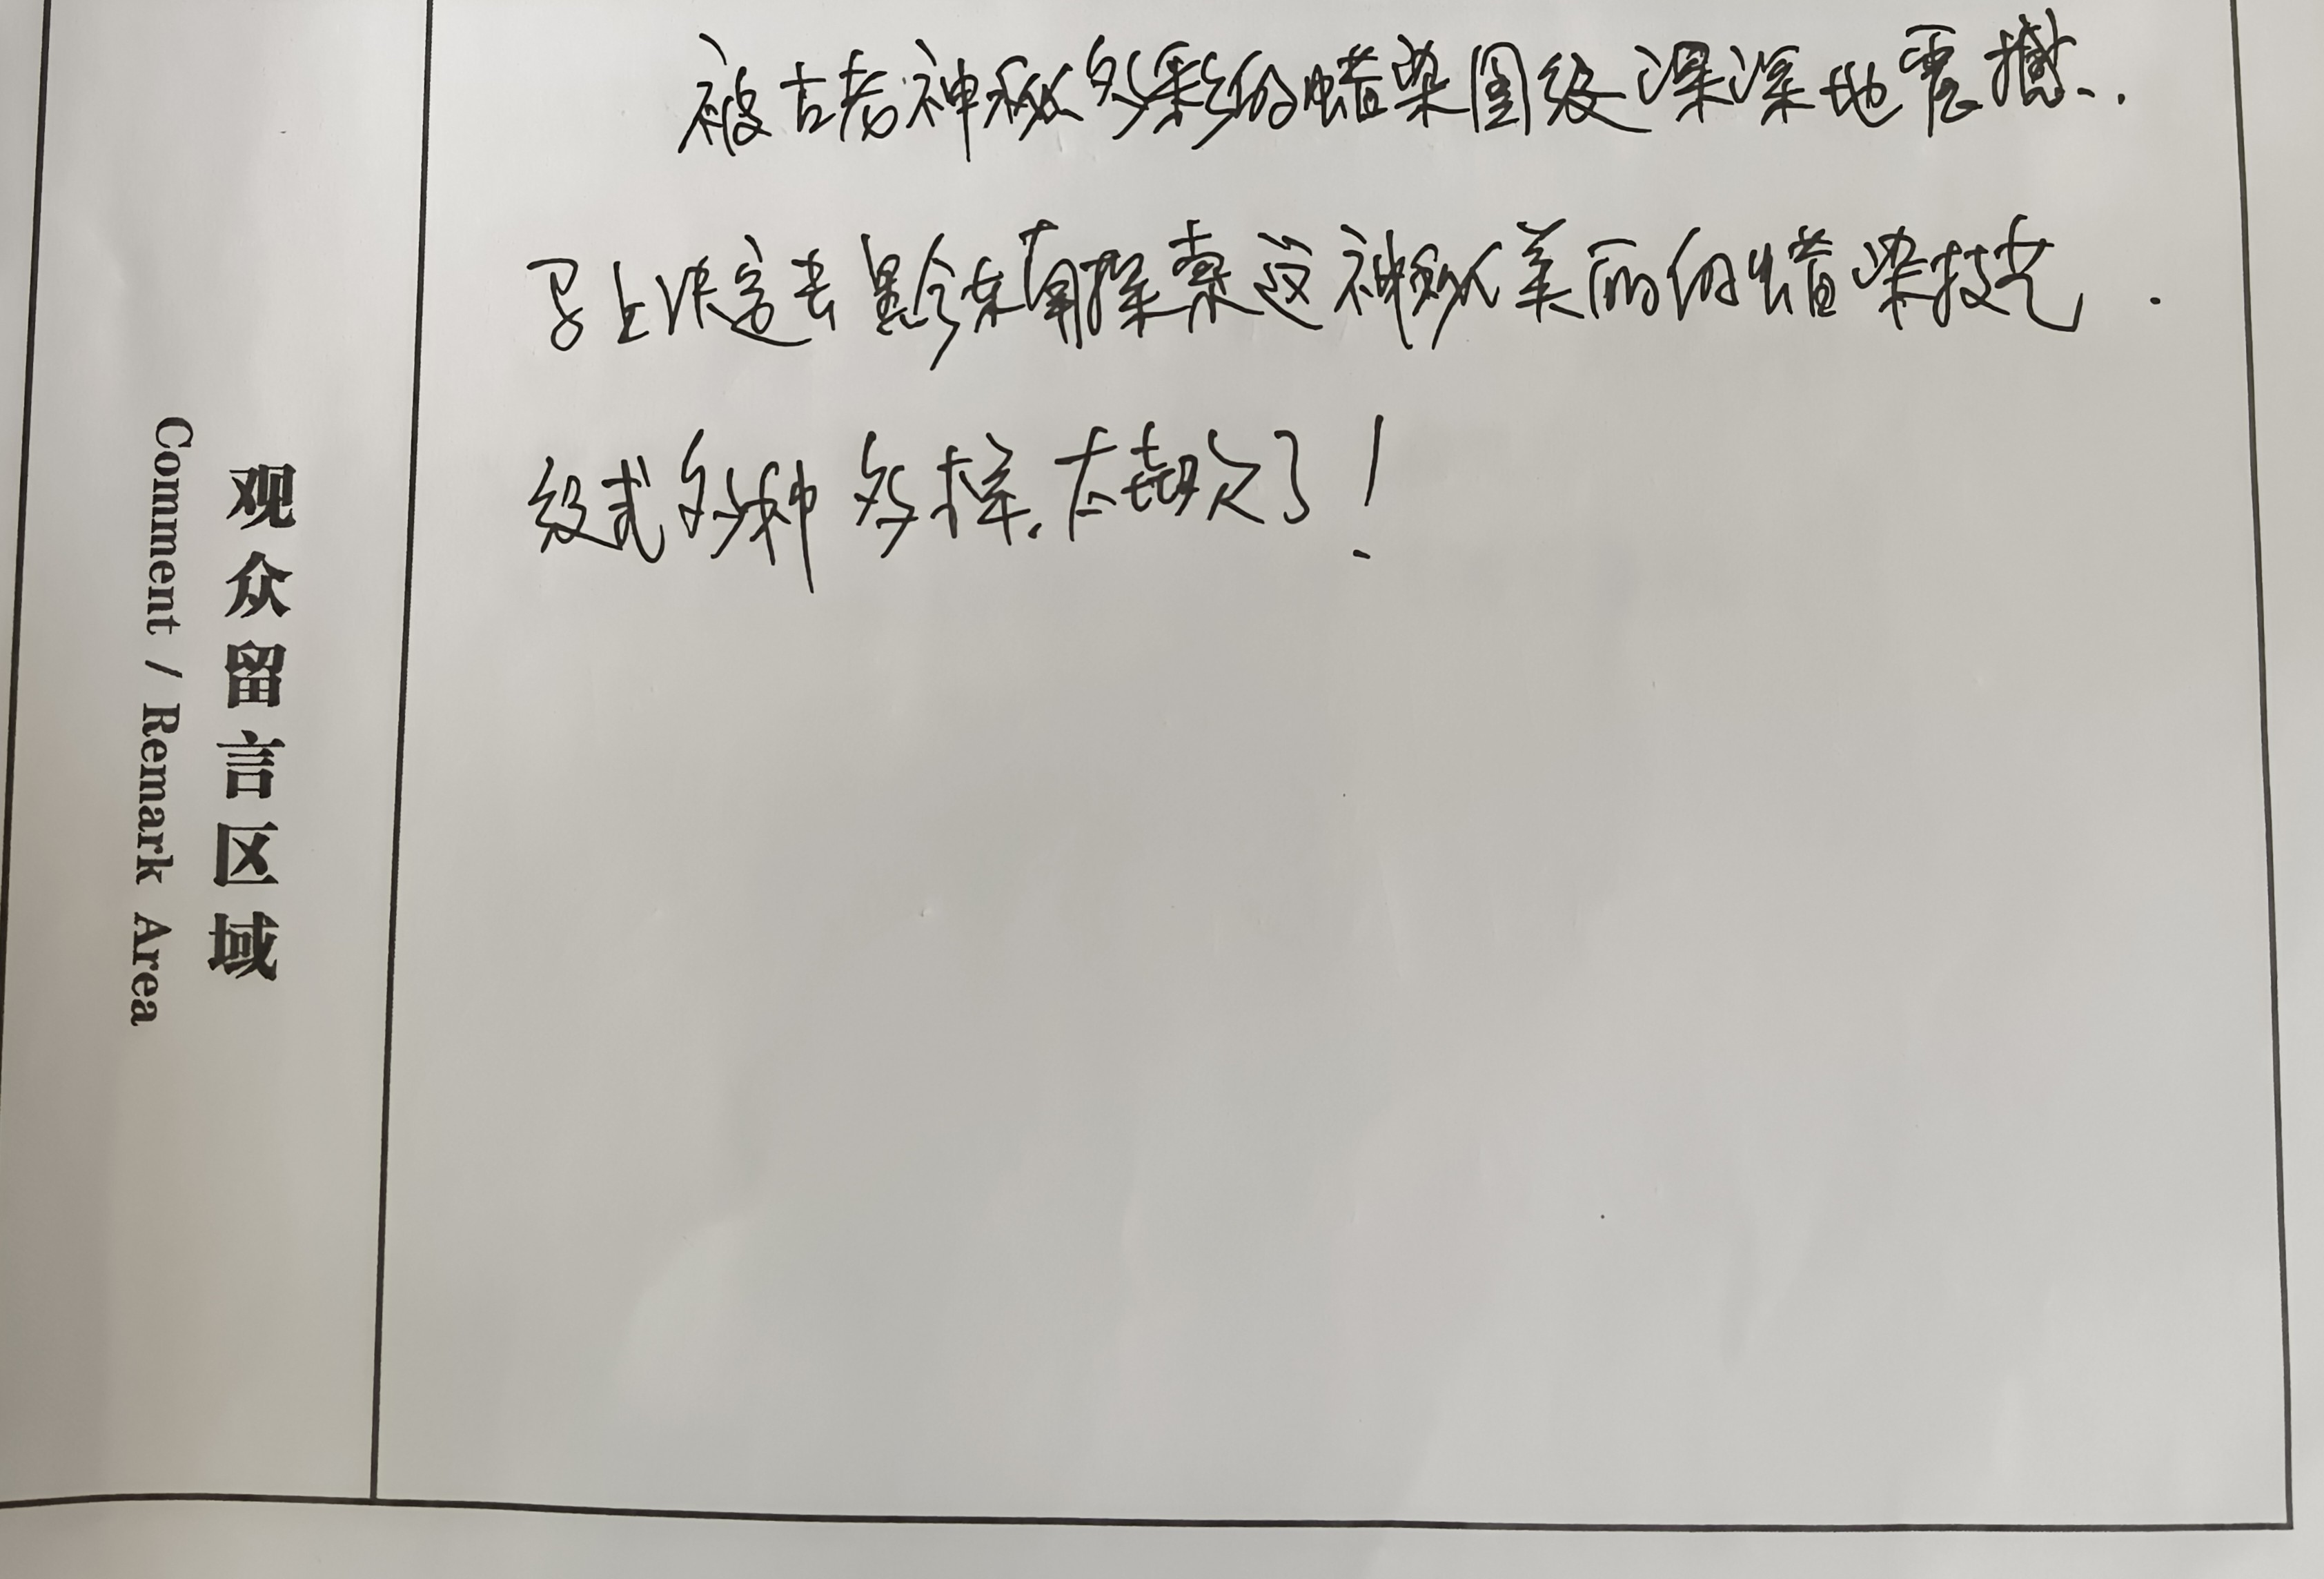 被古老神秘多彩的蜡染图纹深深地震撼..
马上决定去黔东南探索这神秘美丽的蜡染技艺.
纹式多种多样.太喜欢了!
观众留言区域
Comment / Remark Area